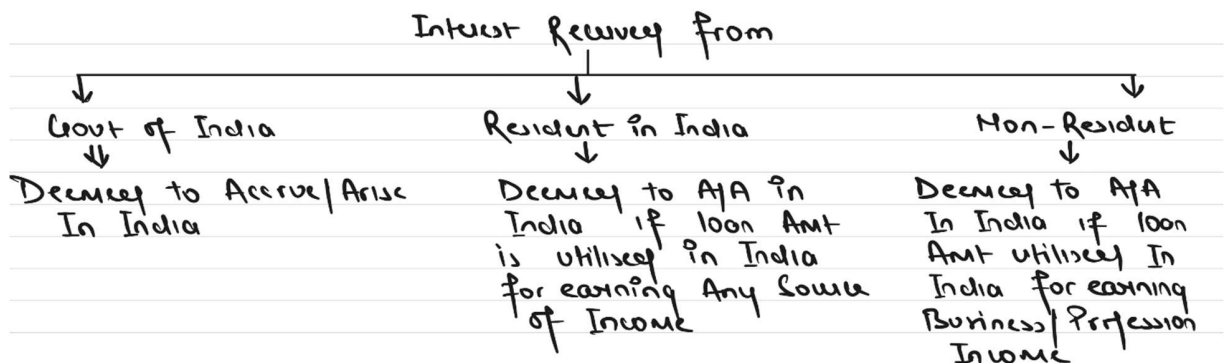 Interest Received from
Govt of India
Deemed to Accrue/Arise
In India
Resident in India
Deemed to A/A in
India if loan Amt
is utilised in India
for earning Any Source
of Income
Non-Resident
Deemed to A/A
In India if loan
Amt utilised In
India for earning
Business/Profession
Income